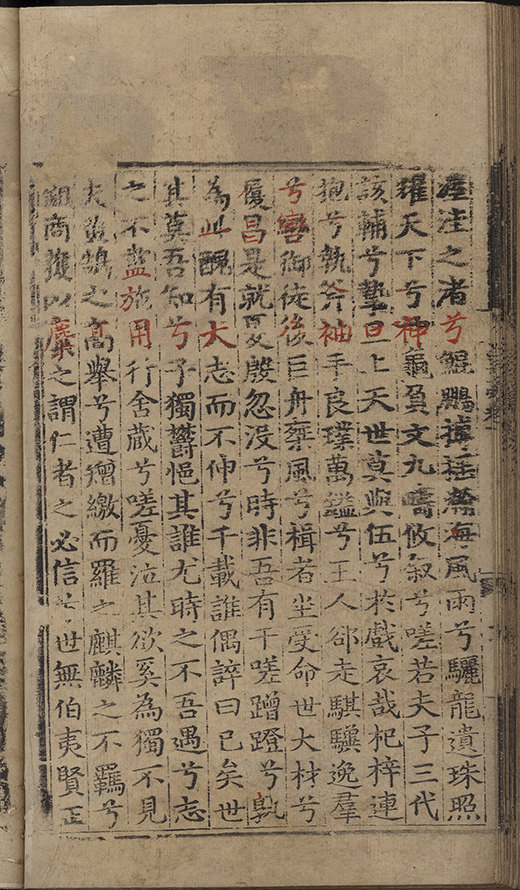 注之者兮鯤鵬瀚海風雨兮驪龍遺珠照
耀天下兮神龜負文九疇攸叙兮嗟若夫子三代
該輔兮摯旦上天世莫與伍兮於戲哀哉杞梓連
抱兮執斧袖手良璞萬鎰兮玉人却走騏驥逸羣
兮御徒後巨舟乗風兮楫者坐受命世大材兮
履昌是就夏殷忽没兮時非吾有干嗟蹭蹬兮孰
為此醜有大志而不伸兮千載誰偶誶曰已矣世
其莫吾知兮予獨鬱悒其誰尤時之不吾遇兮志
之不盡施用行舍藏兮嗟憂泣其欲奚為獨不見
夫鵠之高舉兮遭矰繳而羅之麒麟之不羈兮
商獲以麇之謂仁者之必信兮世無伯夷賢正